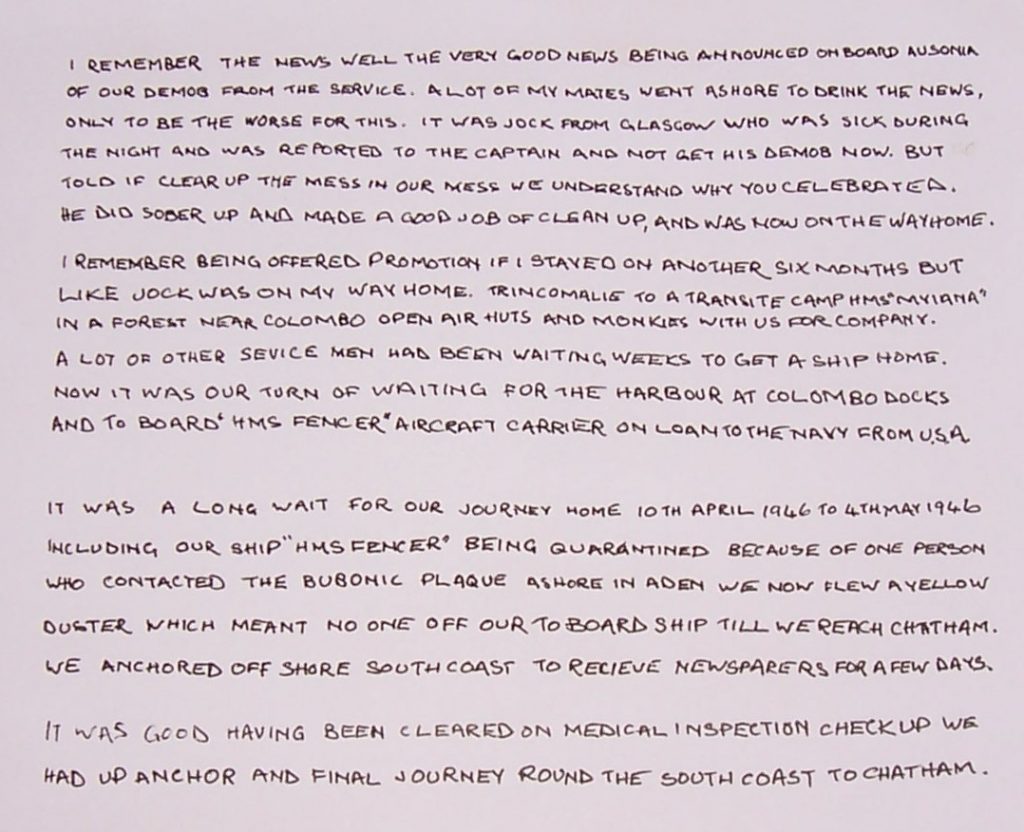 I REMEMBER THE NEWS WELL THE VERY GOOD NEWS BEING ANNOUNCED ON BOARD AUSONIA
OF OUR DEMOB FROM THE SERVICE. A LOT OF MY MATES WENT ASHORE TO DRINK THE NEWS,
ONLY TO BE THE WORSE FOR THIS. IT WAS JOCK FROM GLASGOW WHO WAS SICK DURING
THE NIGHT AND WAS REPORTED TO THE CAPTAIN AND NOT GET HIS DEMOB NOW. BUT
TOLD IF CLEAR UP THE MESS IN OUR MESS WE UNDERSTAND WHY YOU CELEBRATED.
HE DID SOBER UP AND MADE A GOOD JOB OF CLEAN UP, AND WAS NOW ON THE WAY HOME.
I REMEMBER BEING OFFERED PROMOTION IF I STAYED ON ANOTHER SIX MONTHS BUT
LIKE JOCK WAS ON MY WAY HOME. TRINCOMALIE TO A TRANSITE CAMP HMS "MYIANA"
IN A FOREST NEAR COLOMBO OPEN AIR HUTS AND MONKIES WITH US FOR COMPANY.
A LOT OF OTHER SEVICE MEN HAD BEEN WAITING WEEKS TO GET A SHIP HOME.
NOW IT WAS OUR TURN OF WAITING FOR THE HARBOUR AT COLOMBO DOCKS
AND TO BOARD "HMS FENCER" AIRCRAFT CARRIER ON LOAN TO THE NAVY FROM U.S.A
IT WAS A LONG WAIT FOR OUR JOURNEY HOME 10TH APRIL 1946 TO 4TH MAY 1946
INCLUDING OUR SHIP "HMS FENCER" BEING QUARANTINED BECAUSE OF ONE PERSON
WHO CONTACTED THE BUBONIC PLAQUE ASHORE IN ADEN WE NOW FLEW A YELLOW
DUSTER WHICH MEANT NO ONE OFF OUR TO BOARD SHIP TILL WE REACH CHATHAM.
WE ANCHORED OFF SHORE SOUTH COAST TO RECIEVE NEWSPARERS FOR A FEW DAYS.
IT WAS GOOD HAVING BEEN CLEARED ON MEDICAL INSPECTION CHECK UP WE
HAD UP ANCHOR AND FINAL JOURNEY ROUND THE SOUTH COAST TO CHATHAM.